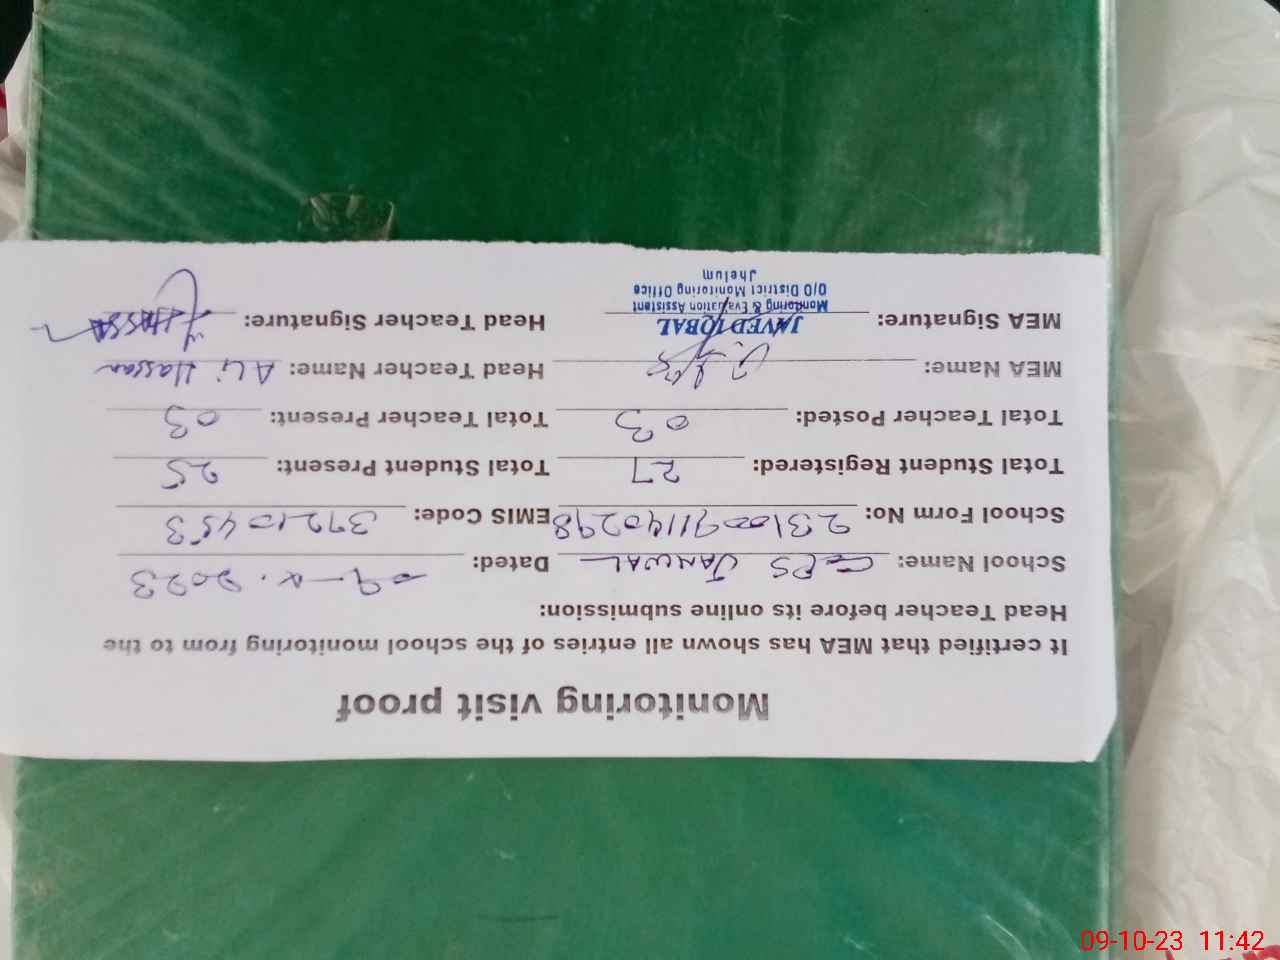 Monitoring visit proof
It certified that MEA has shown all entries of the school monitoring from to the
Head Teacher before its online submission:
School Name: GPS JANWAL Dated: 09-X-2023
School Form No: 23100911140298 EMIS Code: 37210453
Total Student Registered: 27 Total Student Present: 25
Total Teacher Posted: 03 Total Teacher Present: 03
MEA Name: Head Teacher Name: Ali Hassan
MEA Signature: Head Teacher Signature: HASSAN
JAVED IQBAL
Monitoring & Evaluation Assistant
O/O District Monitoring Office
Jhelum
09-10-23 11:42